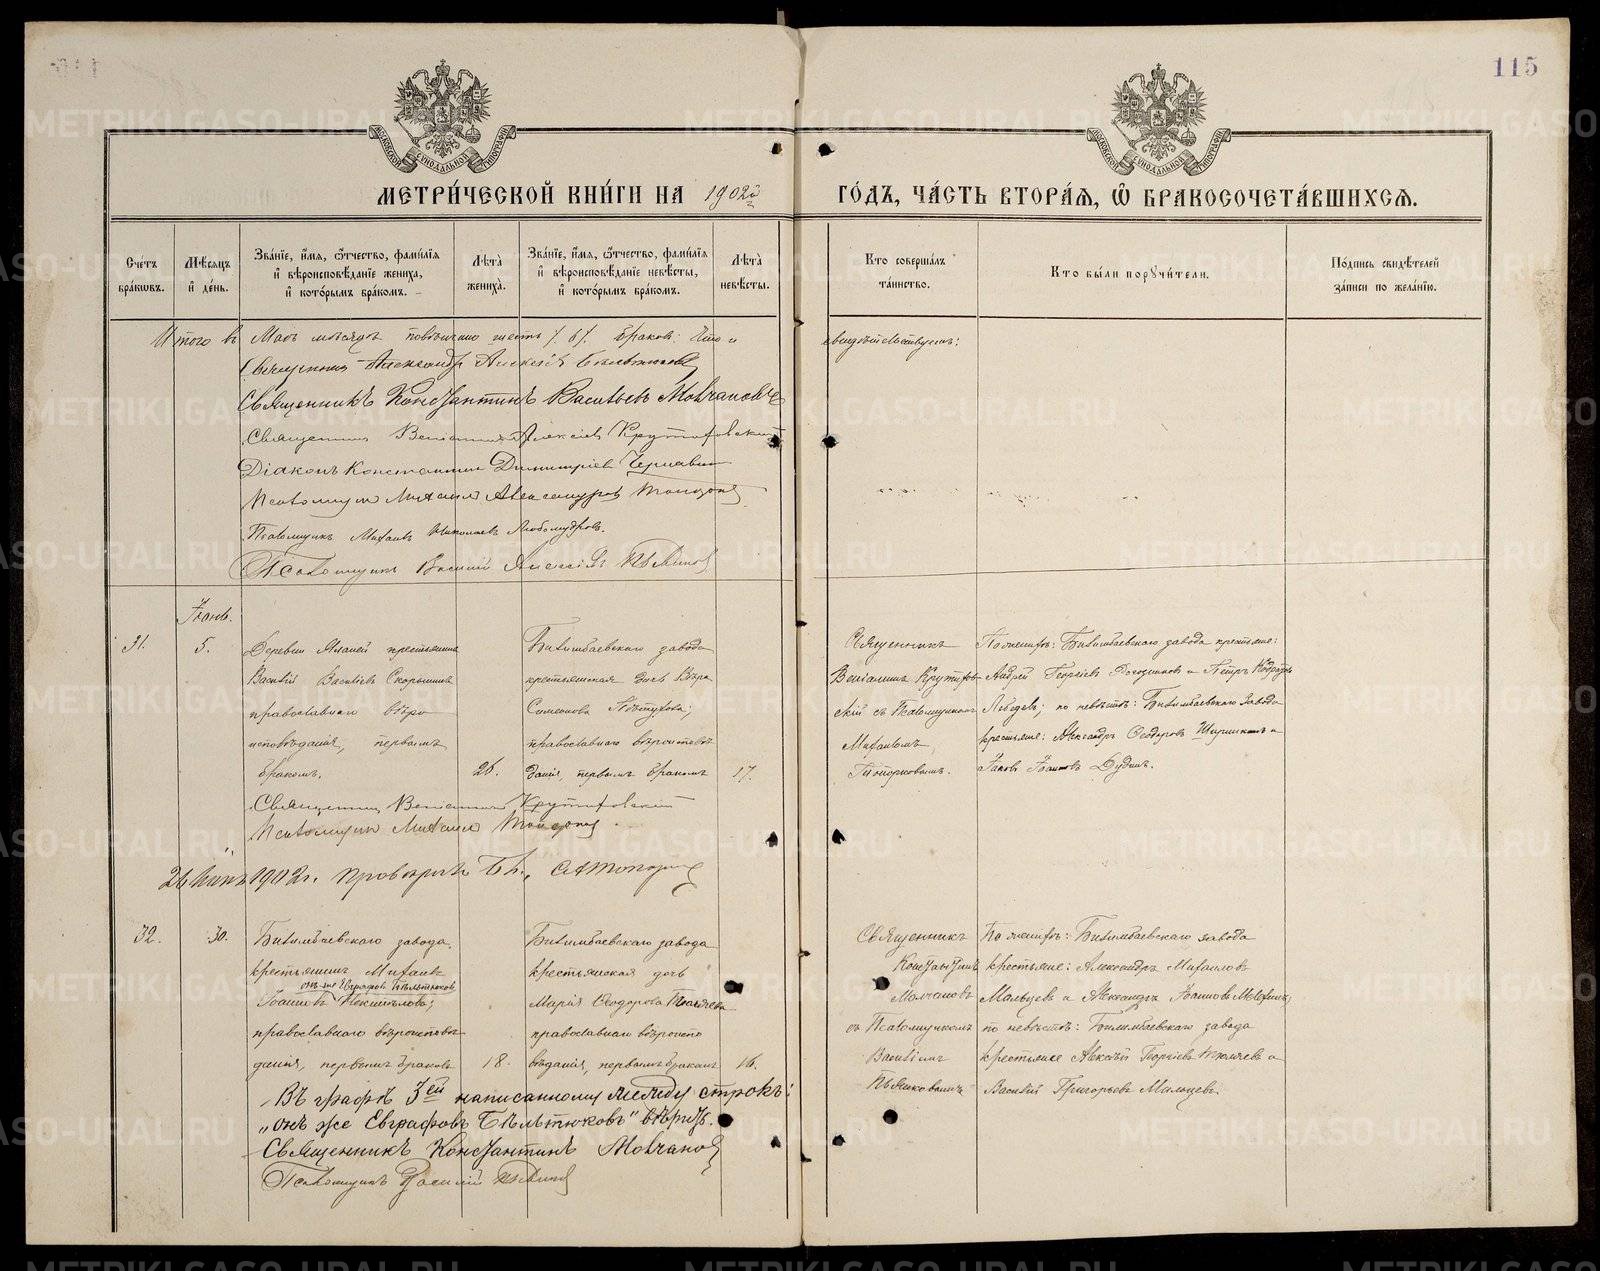 115
МОСКОВСКОЙ СѴНОДАЛЬНОЙ ТИПОГРАФІИ
МОСКОВСКОЙ СѴНОДАЛЬНОЙ ТИПОГРАФІИ
МЕТРИ́ЧЕСКОЙ КНИ́ГИ НА 1902й ГО́ДЪ, ЧА́СТЬ ВТОРА́Ѧ, Ѽ БРАКОСОЧЕТА́ВШИХСѦ.
Сче́тъ бра́кѡвъ.
Мѣ́сѧцъ и҆ де́нь.
Зва́нїе, и҆́мѧ, ѻ҆́тчество, фами́лїѧ и҆ вѣроисповѣ́данїе жениха̀, и҆ кото́рымъ бра́комъ.
Лѣ́та̀ жениха̀.
Зва́нїе, и҆́мѧ, ѻ҆́тчество, фами́лїѧ и҆ вѣроисповѣ́данїе невѣ́сты, и҆ кото́рымъ бра́комъ.
Лѣ́та̀ невѣ́сты.
Кто соверша́лъ та́инство.
Кто бы́ли порꙋчи́тели.
По́дпись свидѣ́телей за́писи по жела́нїю.
Итого въ Маѣ мѣсяцѣ повѣнчано шесть /6/ браковъ: Что и свидѣтельствуемъ:
Священникъ Александръ Алексѣевъ
Священникъ Константинъ Васильевъ Молчановъ
Священникъ Веніаминъ Алексѣевъ Крутиховскій
Діаконъ Константинъ Димитріевъ Чернавинъ
Псаломщикъ Михаилъ Александровъ Топорковъ
Псаломщикъ Михаилъ Николаевъ Любомудровъ.
Псаломщикъ Василій Алексѣевъ Пьянковъ
Іюнь.
31.
5.
Деревни крестьянинъ
Василій Васильевъ Скорынинъ
православнаго вѣро
исповѣданія, первымъ
бракомъ.
26.
Билимбаевскаго завода
крестьянская дочь Вѣра
Симеонова Пѣтухова;
православнаго вѣроисповѣ
данія, первымъ бракомъ
17.
Священникъ
Веніаминъ Крутихов-
скій съ Псаломщикомъ
Михаиломъ
Топорковымъ.
По женихѣ: Билимбаевскаго завода крестьяне:
Андрей Георгіевъ и Петръ
Лебедевъ; по невѣстѣ: Билимбаевскаго завода
крестьяне: Александръ Ѳеодоровъ и
Іаковъ Іоанновъ Дудинъ.
Священникъ Веніаминъ Крутиховскій
Псаломщикъ Михаилъ Топорковъ.
26 Іюня 1902 г. провѣрялъ Бл.,
32.
30.
Билимбаевскаго завода
крестьянинъ Михаилъ
онъ же Евграфовъ Бѣлътюковъ
Іоанновъ
православнаго вѣроисповѣ
данія, первымъ бракомъ
18.
Билимбаевскаго завода
крестьянская дочь
Марія Ѳеодорова
православнаго вѣроиспо
вѣданія, первымъ бракомъ
16.
Священникъ
Константинъ
Молчановъ
съ Псаломщикомъ
Василіемъ
Пьянковымъ
По женихѣ: Билимбаевскаго завода
крестьяне: Александръ Михаиловъ
Мальцевъ и Александръ Іоанновъ
по невѣстѣ: Билимбаевскаго завода
крестьяне Алексѣй Георгіевъ и
Василій Григорьевъ Мальцевъ.
Въ графѣ 3ей написанному между строкъ:
„онъ же Евграфовъ Бѣлътюковъ" вѣрить.
Священникъ Константинъ Молчановъ
Псаломщикъ Василій Пьянковъ
METRIKI.GASO-URAL.RU